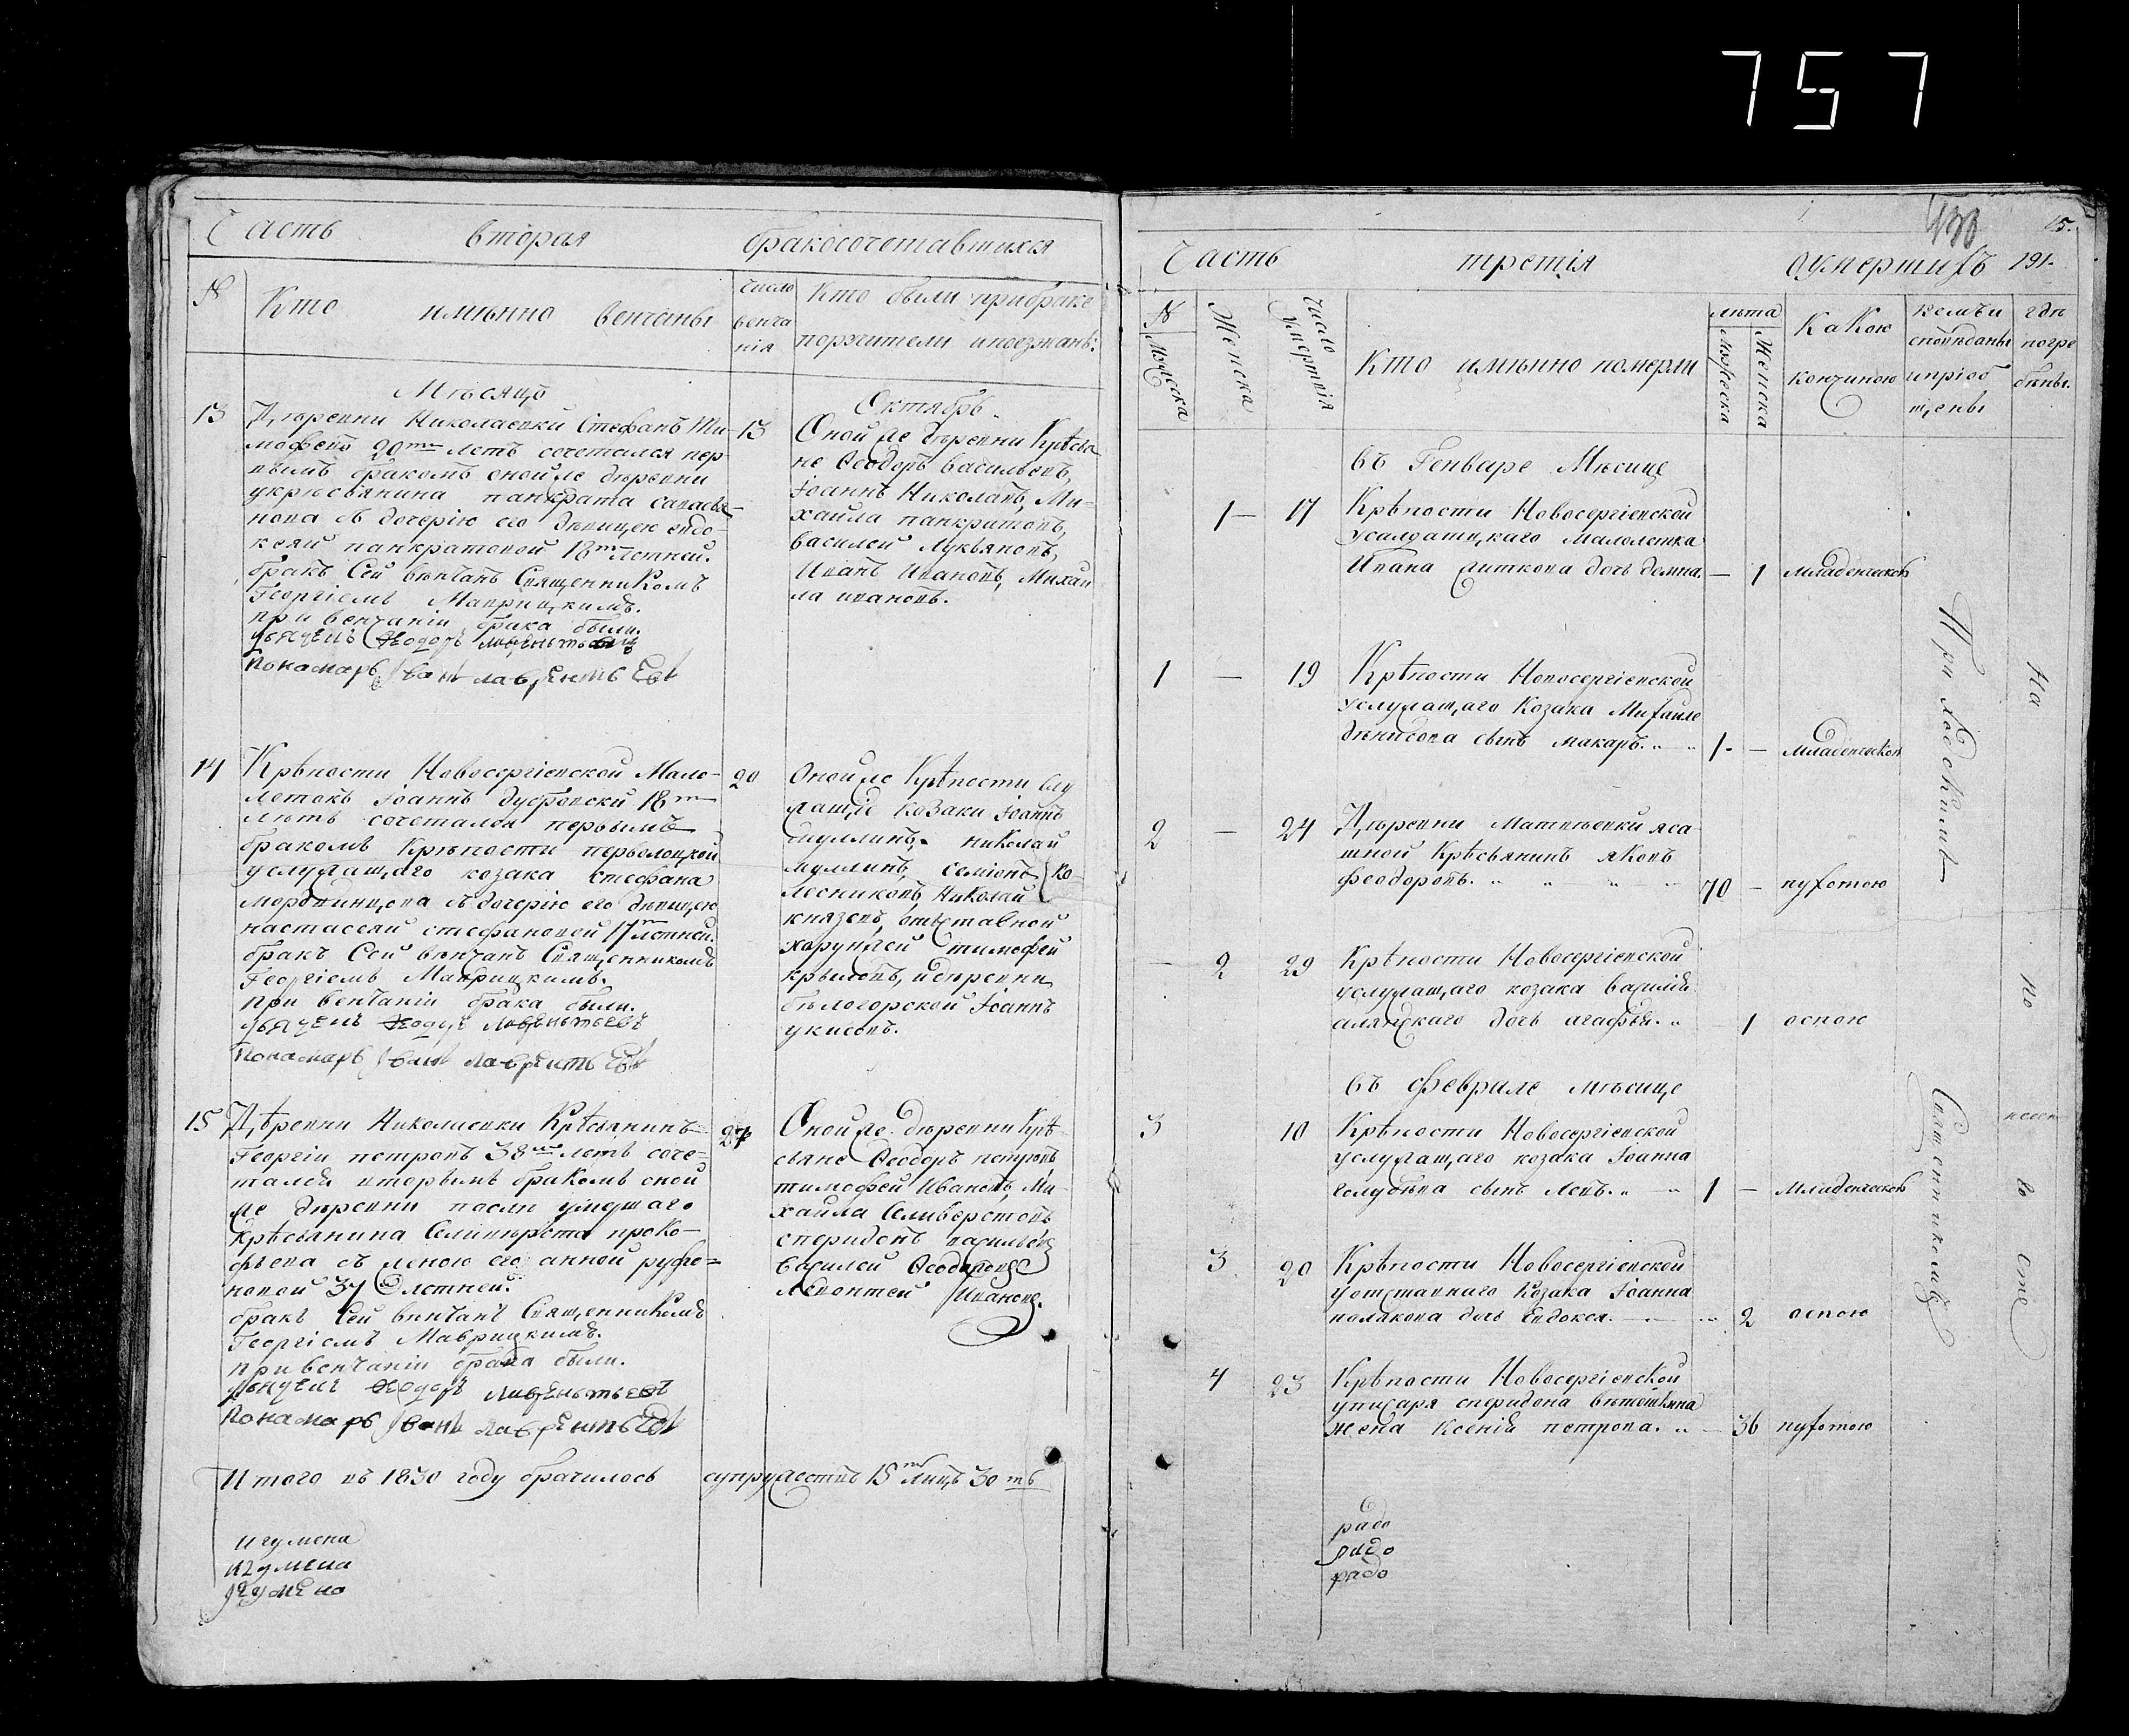 757
Часть вторая бракосочетавшихся
№
Кто имянно венчаны
число венча нія
Кто были прибраке
поручители
Мѣсяцъ Октябрь
13
Дѣревни Николаевки Стефанъ Ти-
мофеевъ 20ти летъ сочетался пер
вымъ бракомъ оной же дѣревни
укрѣсьянина панкрата
нова съ дочерію его девицею евдо-
кеей панкратовой 18ти летней.
бракъ Сей вѣнчанъ Священникомъ
Георгіемъ Маврицкимъ.
при венчаніи брака были.
дьячекъ Ѳеодоръ лаврентьевъ
Пономарь Іванъ лаврентьевъ
13
Оной же дѣревни Крѣсья
не Ѳеодоръ васильевъ,
Іоаннъ Николаевъ, Ми-
хайла панкратовъ,
василей Лукьяновъ,
Иванъ Ивановъ, Михаи
ла ивановъ.
14
Крѣпости Новосергіевской Мало-
летокъ Іоаннъ 18ти
летъ сочетался первымъ
бракомъ Крѣпости переволоцкой
услужащаго козака стефана
мордвинцова съ дочерію его девицею
настасеей стефановой 17 летней.
бракъ Сей вѣнчанъ Священникомъ
Георгіемъ Маврицкимъ.
при венчаніи брака были.
дьячекъ Ѳеодоръ лаврентьевъ
Пономарь Іванъ лаврентьевъ
20
Оной же Крѣпости слу
жащіе козаки Іоаннъ
шуллинъ, николай
муллинъ, семіонъ Ко-
лесниковъ, Николай
князевъ, отставной
харунжей тимофей
крыловъ, идѣревни
бѣлогорской Іоаннъ
укисовъ.
15
Дѣревни Николаевки Крѣсьянинъ
Георгіи петровъ 38ми летъ соче-
тался вторымъ бракомъ оной
же дѣревни послѣ умершаго
крѣсьянина Селивѣрста проко-
фьева съ женою его анной руфе-
новой 34 летней.
бракъ Сей вѣнчанъ Священникомъ
Георгіемъ Маврицкимъ.
при венчаніи брака были.
дьячекъ Ѳеодоръ лаврентьевъ
Пономарь Іванъ лаврентьевъ
27
Оной же дѣревни Крѣ
сьяне Ѳеодоръ петровъ,
тимофей Ивановъ, Ми-
хайла Селиверстовъ
спиридонъ васильевъ
василей Ѳеодоровъ
Левонтей Ивановъ.
Итого въ 1830 году брачилось супружествъ 15ть лицъ 30ть
игумена
игумена
игумено
430
15.
Часть третія оумершихъ 191.
№ Мужеска
Женска
Число умертвія
Кто имянно померли
лѣта
Мужеска
Женска
Какою
кончиною
кемъ и
исповѣданы
и пріоб
щены
гдѣ
погре
бены.
въ Генваре Мѣсяце
1 — 17
Крѣпости Новосергіевской
усалдатскаго Малолетка
Ивана Ситкова дочь домна. — 1 младенческой
1 — 19
Крѣпости Новосергіевской
услужащаго Козака Михаиле
дѣнисова сынъ макаръ. 1. — младенческой
2 — 24
Дѣревни Матвѣевки яса
шной Крѣсьянинъ яковъ
феодоровъ. 70 — пухотою
— 2 29
Крѣпости Новосергіевской
услужащаго козака василія
дочь агафья. 1 оспою
въ феврале мѣсяце
3 10
Крѣпости Новосергіевской
услужащаго козака Іоанна
голубѣва сынъ левъ. 1 — младенческой
3 20
Крѣпости Новосергіевской
уотставнаго Козака Іоанна
полякова дочь Евдокея. 2 оспою
4 23
Крѣпости Новосергіевской
уписаря спиридона
жена Ксенія петрова. — 36 пухотою
Приходскимъ Священникомъ
На по гост
радо
радо
радо